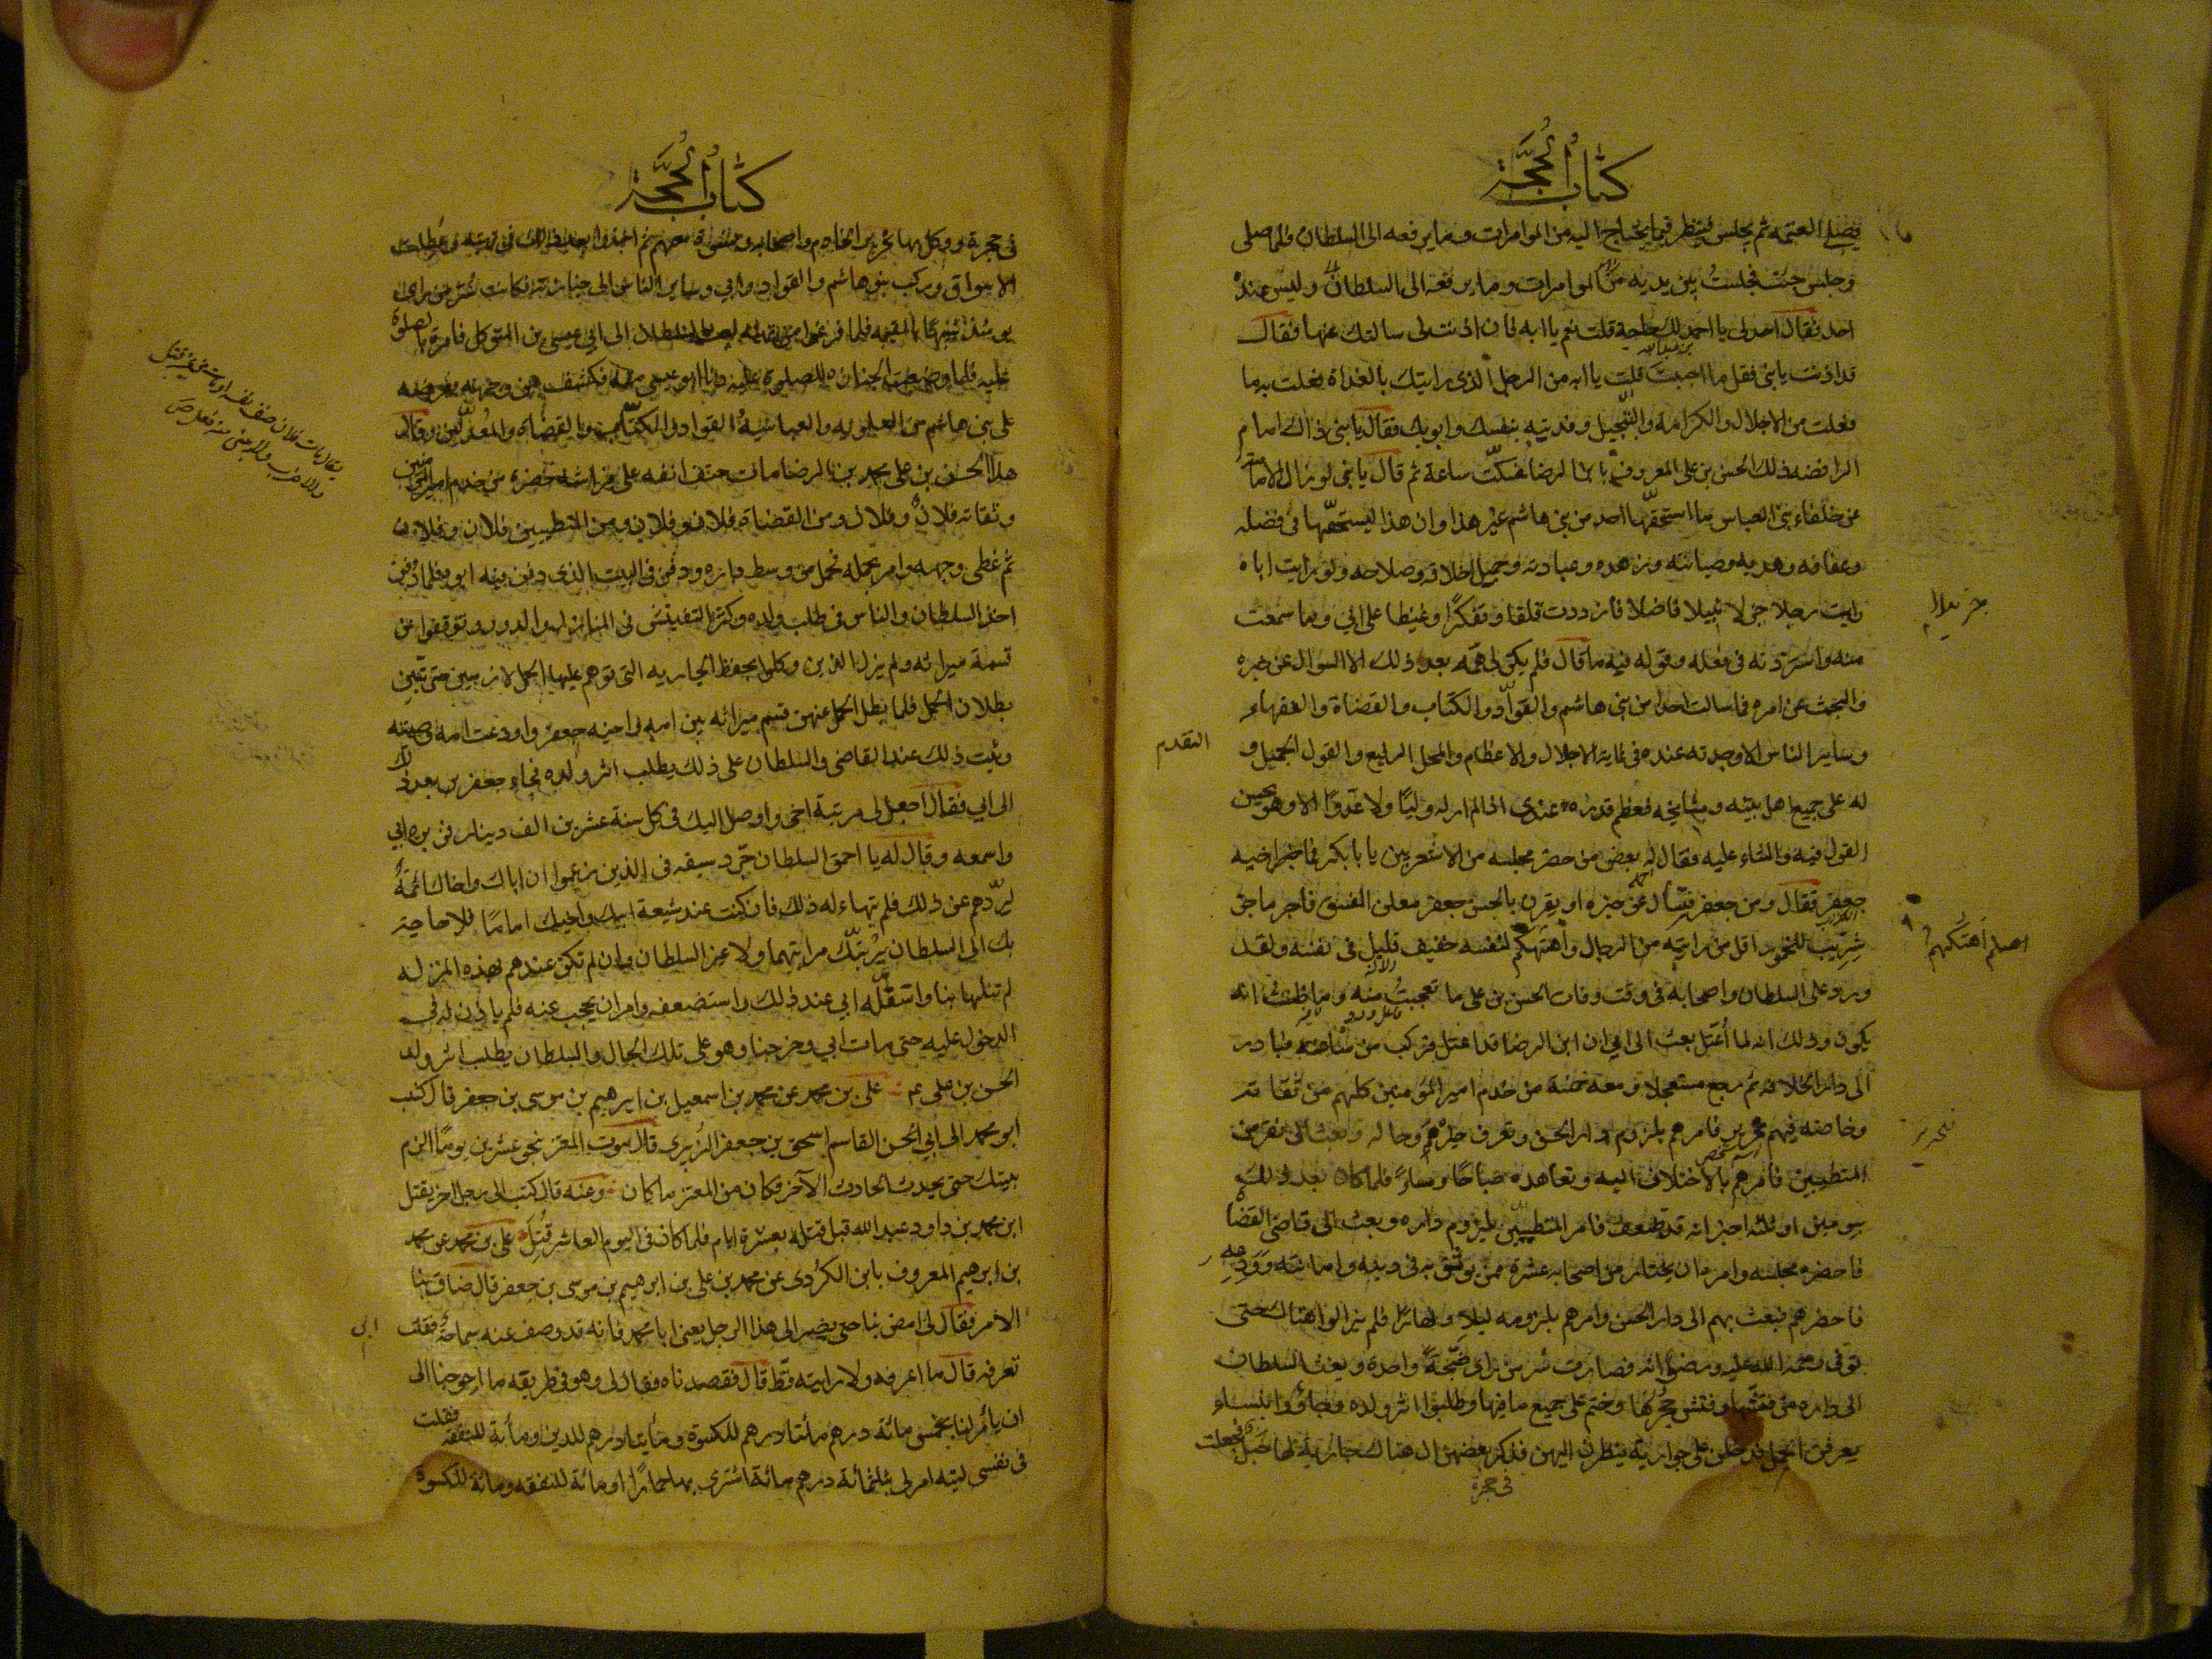 كتاب الحجة
فيصلي العتمة ثم يجلس فينظر فيما يحتاج اليه من الموامرات وما يرفعه الى السلطان فلما صلى
وجلس جئت فجلست بين يديه من الموامرات وما يرفعه الى السلطان وليس عنده
احد فقال لى يا احمد لك حاجة قلت نعم يا ابه فان اذنت لى سالتك عنها فقال
قد اذنت يا بنى فقل ما احببت قلت يا ابه من الرجل الذى رايتك بالغداة فعلت به ما
فعلت من الاجلال والكرامة والتبجيل وفديته بنفسك وابويك فقال يا بنى ذاك امام
الرافضه ذلك الحسن بن على المعروف بابن الرضا فسكت ساعة ثم قال يا بنى لو زال الامامة
عن خلفاء بنى العباس ما استحقها احد من بنى هاشم غير هذا وان هذا ليستحقها فى فضله
وعفافه وهديه وصيانته وزهده وعبادته وجميل اخلاقه وصلاحه ولو رايت اباه
رايت رجلا جزلا نبيلا فاضلا فازددت قلقا وتفكرا وغيظا على ابي وما سمعت
منه واستزدته فى فعله وقوله فيه ما قال فلم يكن لى همة بعد ذلك الا السوال عن خبره
والبحث عن امره فما سالت احدا من بنى هاشم والقواد والكتاب والقضاة والفقهاء
وساير الناس الا وجدته عنده فى غاية الاجلال والاعظام والمحل الرفيع والقول الجميل و
التقدم
له على جميع اهل بيته ومشايخه فعظم قدره عندى اذ لم ار له وليا ولا عدوا الا وهو يحسن
القول فيه والثناء عليه فقال له بعض من حضر مجلسه من الاشعريين يا با بكر فما خبر اخيه
جعفر فقال ومن جعفر فتسال عن خبره او يقرن بالحسن جعفر معلن الفسق فاجر ماجن
شريب للخمور اقل من رايته من الرجال واهتكهم لنفسه خفيف قليل فى نفسه ولقد
اصلم اهتكهم
ورد على السلطان واصحابه فى وقت وفات الحسن بن على ما تعجبت منه وما ظننت انه
يكون وذلك انه لما اعتل بعث الى ابي ان ابن الرضا قد اعتل فركب من ساعته فبادر
الى دار الخلافه ثم رجع مستعجلا ومعه خمسة من خدم امير المؤمنين كلهم من ثقاته
وخاصته فيهم نحرير فامرهم بلزوم دار الحسن وتعرف خبره وحاله وبعث الى نفر من
نحرير
المتطببين فامرهم بالاختلاف اليه وتعاهده صباحا ومساء فلما كان بعد ذلك
بيومين او ثلثة اخبر انه قد ضعف فامر المتطببين بلزوم داره وبعث الى قاضى القضاة
فاحضره مجلسه وامره ان يختار من اصحابه عشرة ممن يوثق به فى دينه وامانته وورعه
فاحضرهم فبعث بهم الى دار الحسن وامرهم بلزومه ليلا ونهارا فلم يزالوا هناك حتى
توفى رحمة الله عليه ورضوانه فصارت سر من راى ضجة واحدة وبعث السلطان
الى داره من فتشها وفتش حجرها وختم على جميع ما فيها وطلبوا اثر ولده وجاؤا بنساء
يعرفن الحمل فدخلن على جواريه ينظرن اليهن فذكر بعضهن ان هناك جارية لها حبل فجعلت
فى حجرة
كتاب الحجة
فى حجرة ووكل بها نحرير الخادم واصحابه ونسوة معهم ثم اخذوا بعد ذلك فى تهيئته وعطلت
الاسواق وركب بنو هاشم والقواد وابي وساير الناس الى جنازته فكانت سر من راى
يومئذ شبيها بالقيمة فلما فرغوا من تهيئته بعث السلطان الى ابي عيسى بن المتوكل فامره بالصلوة
عليه فلما وضعت الجنازة للصلوة عليه دنا ابو عيسى منه فكشف عن وجهه فعرضه
على بنى هاشم من العلويه والعباسية والقواد والكتاب والقضاة والمعدلين وقال
هذا الحسن بن على محمد بن الرضا مات حتف انفه على فراشه حضره من خدم امير المؤمنين
وثقاته فلان وفلان ومن القضاة فلان وفلان ومن المتطببين فلان وفلان
ثم غطى وجهه وامر بحمله فحمل من وسط داره ودفن فى البيت الذى دفن فيه ابوه فلما دفن
اخذ السلطان والناس فى طلب ولده وكثر التفتيش فى المنازل والدور وتوقفوا عن
قسمة ميراثه ولم يزل الذين وكلوا بحفظ الجاريه التى توهم عليها الحمل لازمين حتى تبين
بطلان الحمل فلما بطل الحمل عنهن قسم ميراثه بين امه واخيه جعفر وادعت امه وصيته
وثبت ذلك عند القاضى والسلطان على ذلك يطلب اثر ولده فجاء جعفر بعد ذلك
الى ابي فقال اجعل لى مرتبة اخى واوصل اليك فى كل سنة عشرين الف دينار فزبره ابي
واسمعه وقال له يا احمق السلطان جرد سيفه فى الذين زعموا ان اباك واخاك ائمة
ليردهم عن ذلك فلم يتهياء له ذلك فان كنت عند شيعة ابيك واخيك اماما فلا حاجة
بك الى السلطان يرتبك مراتبهما ولا غير السلطان وان لم تكن عندهم بهذه المنزله
لم تنلها بنا واستقله ابي عند ذلك واستضعفه وامر ان يحجب عنه فلم ياذن له فى
الدخول عليه حتى مات ابي وخرجنا وهو على تلك الحال والسلطان يطلب اثر ولد
الحسن بن على عم على بن محمد عن محمد بن اسمعيل بن ابرهيم بن موسى بن جعفر قال كتب
ابو محمد الى ابي الحسن القاسم اسحق بن جعفر الزبيرى قال موت المعتز نحو عشرين يوما الزم
بيتك حتى يحدث الحادث الآخر فكان من المعتز ما كان وعنه قال كتب الى رجل اخر يقتل
ابن محمد بن داود عبد الله قبل قتله بعشرة ايام فلما كان فى اليوم العاشر قتل على بن محمد عن محمد
بن ابرهيم المعروف بابن الكردى عن محمد بن على بن ابرهيم بن موسى بن جعفر قال ضاق بنا
الامر فقال لى ابي امض بنا حتى نصير الى هذا الرجل يعنى ابا محمد فانه قد وصف عنه سماحة فقلت
تعرفه قال ما اعرفه ولا رايته قط قال فقصدناه فقال لى وهو فى طريقه ما احوجنا الى
ان يأمر لنا بخمس مائة درهم مائتا درهم للكسوة ومائتا درهم للدين ومائة للنفقة فقلت
فى نفسى ليته امر لى بثلثمائة درهم مائة اشترى بها حمارا ومائة للنفقه ومائة للكسوة